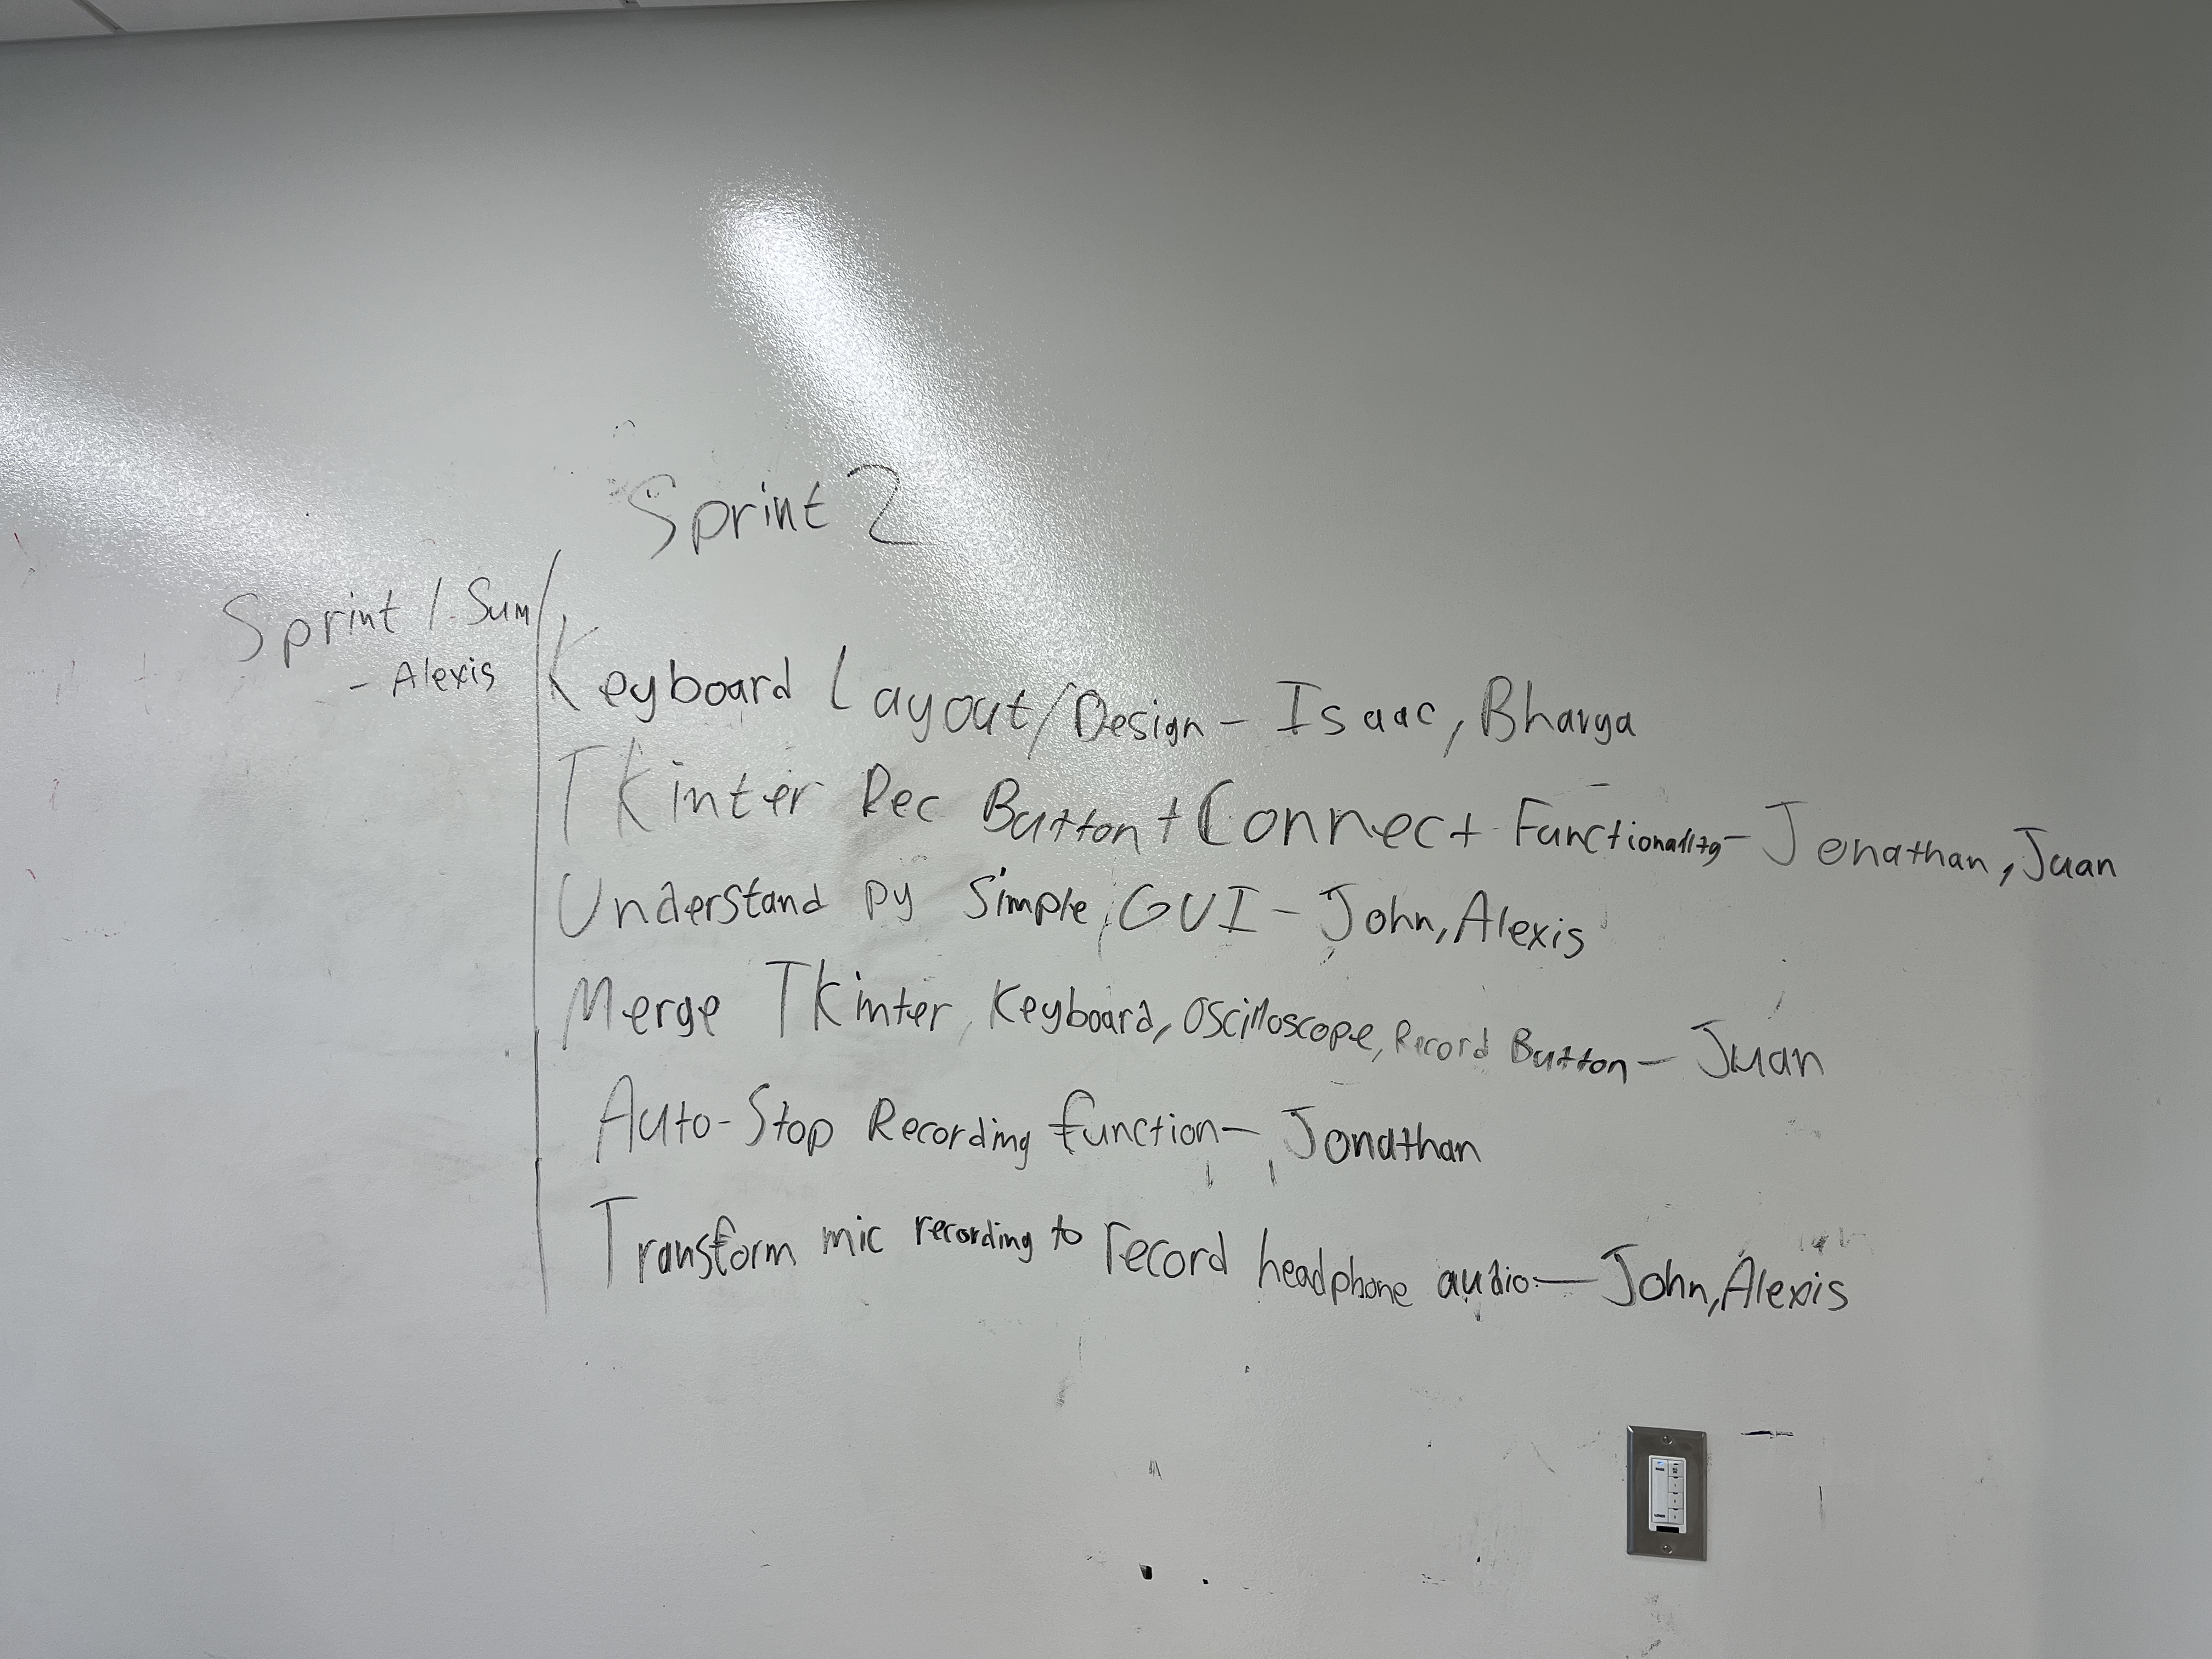 Sprint 2
Sprint 1. Sum
- Alexis
Keyboard Layout/Design - Isaac, Bharga
TKinter Rec Button + Connect Functionality - Jonathan, Juan
Understand py Simple GUI - John, Alexis
Merge TKinter, Keyboard, Oscilloscope, Record Button - Juan
Auto-Stop Recording function - Jonathan
Transform mic recording to record headphone audio - John, Alexis